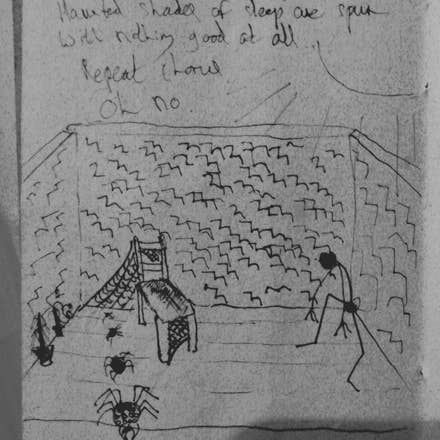 Haunted shades of sleep are spun
with nothing good at all.
Repeat Chorus
Oh no.